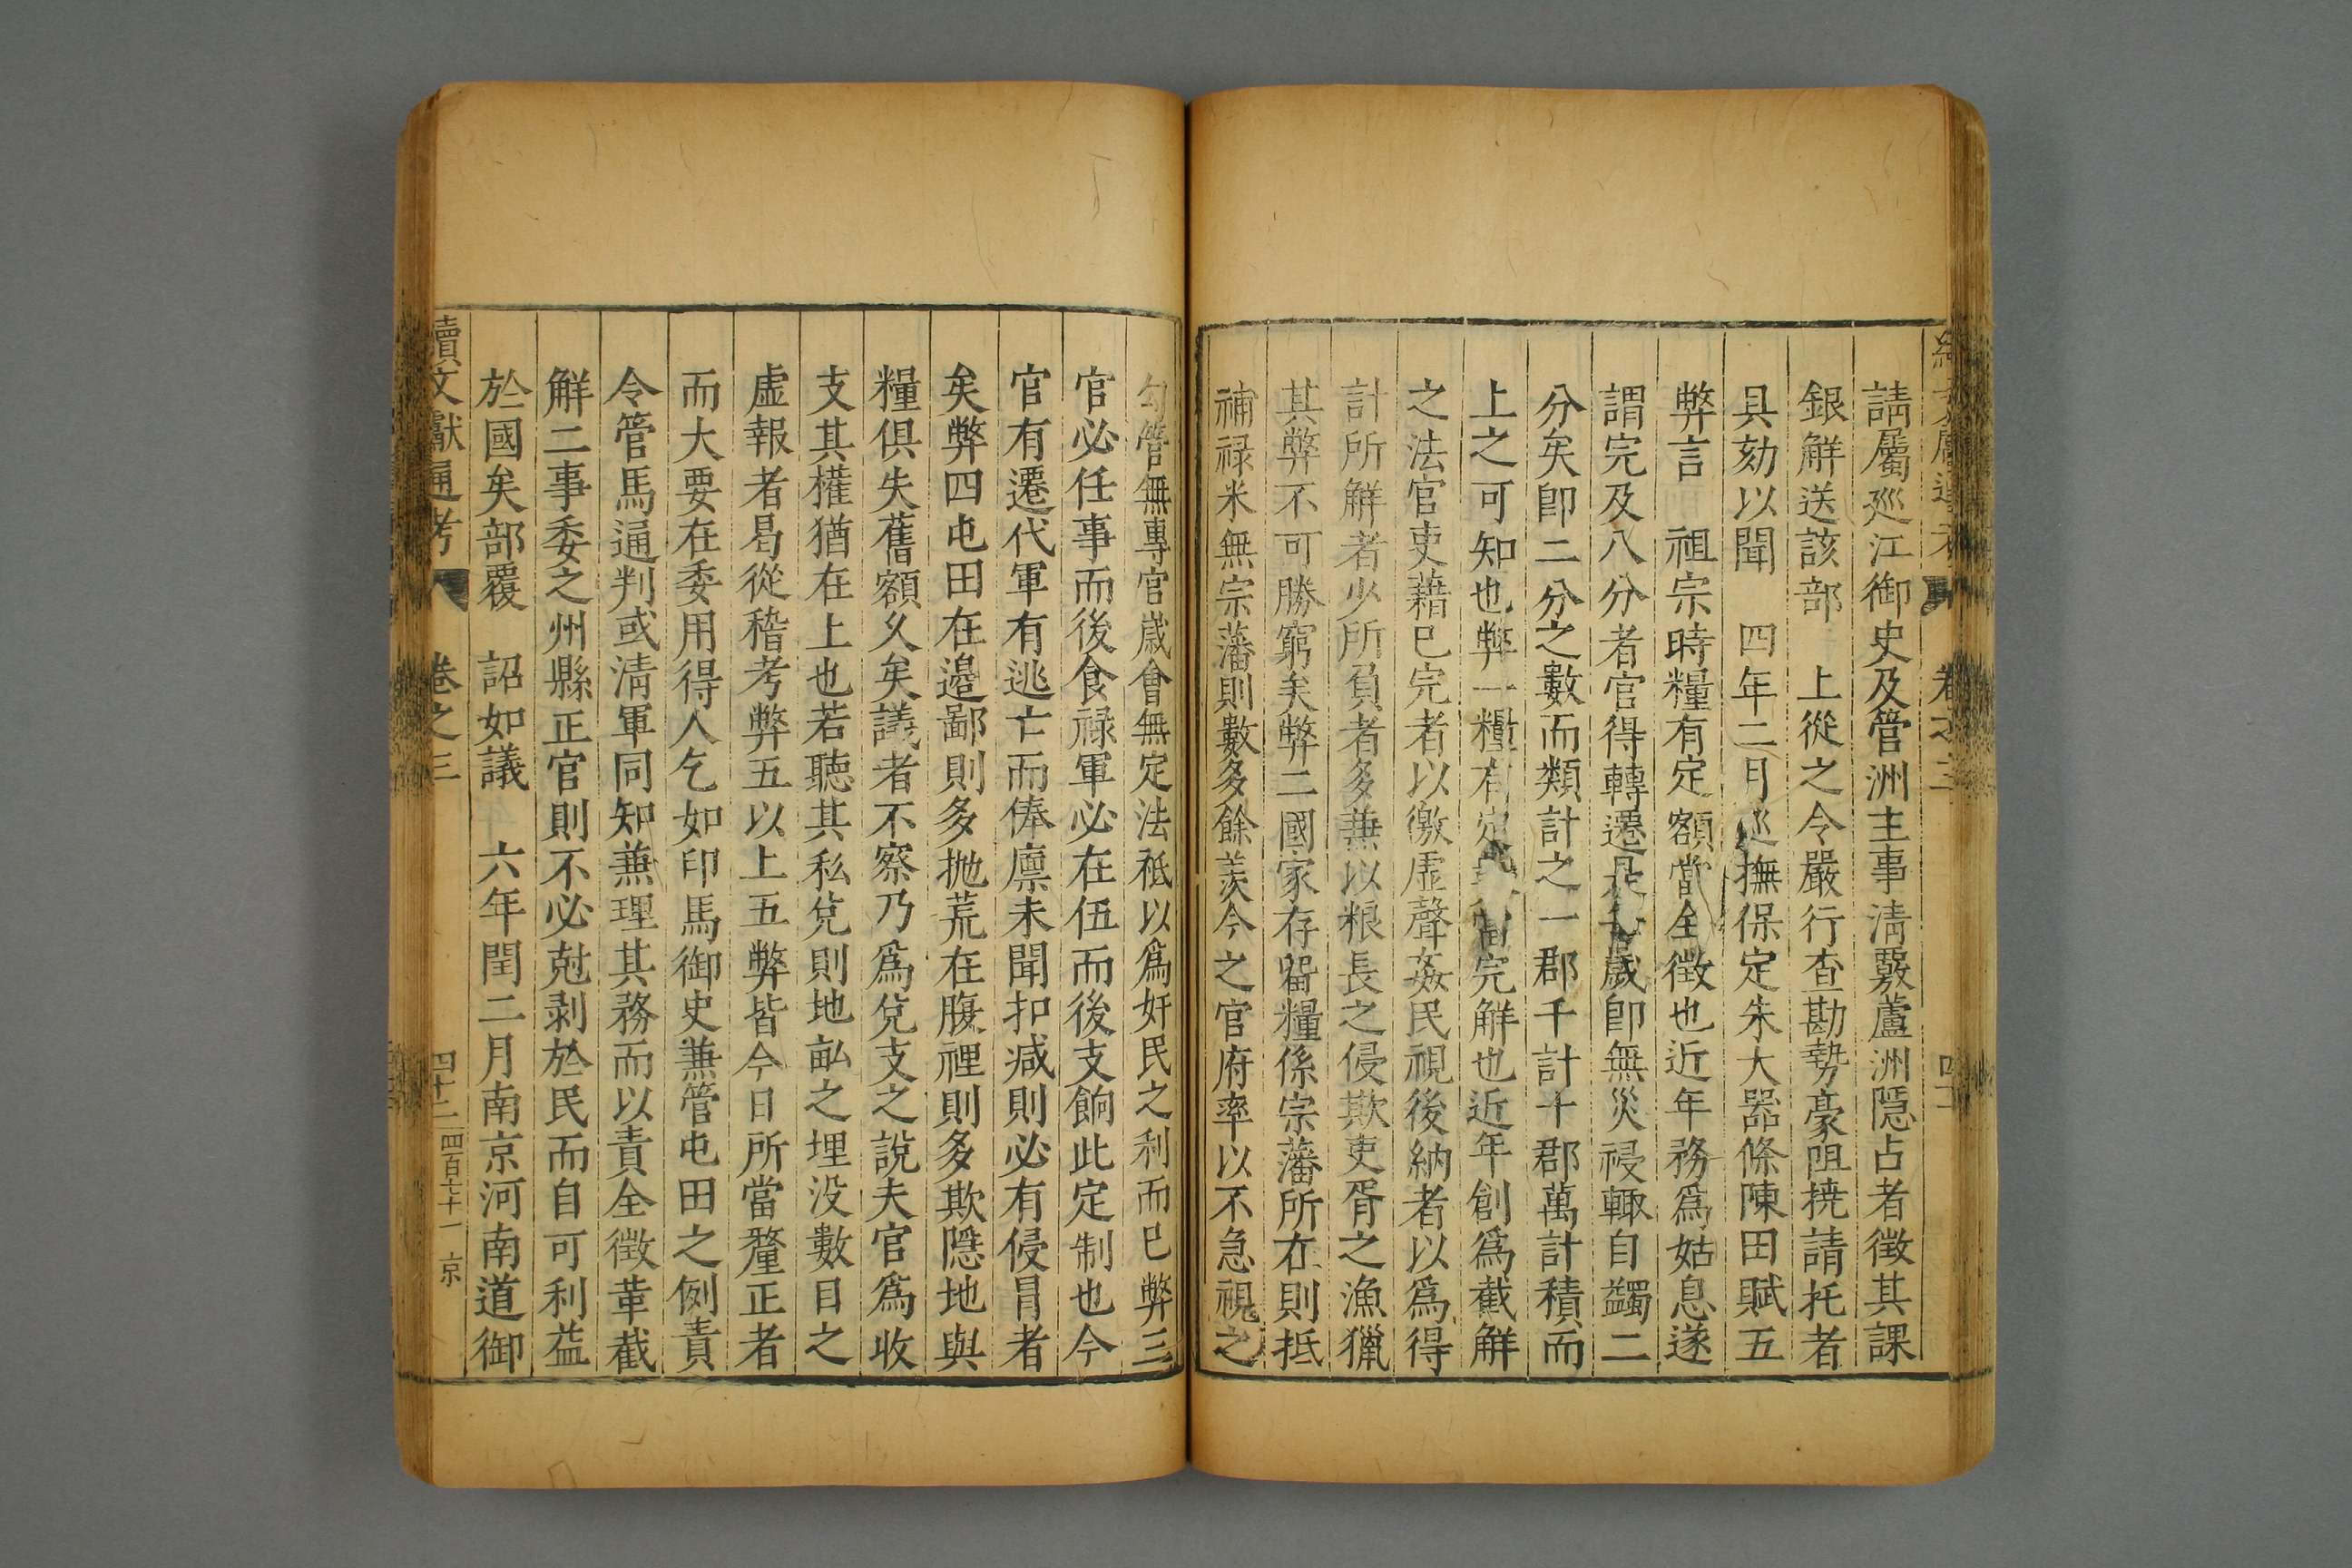 請屬廵江御史及管洲主事淸覈蘆洲隱占者徵其課
銀解送該部 上從之令嚴行查勘勢豪阻撓請托者
具劾以聞 四年二月廵撫保定朱大噐條陳田賦五
弊言 祖宗時糧有定額當全徵也近年務爲姑息遂
謂完及八分者官得轉遷是歲卽無災祲輙自蠲二
分矣卽二分之數而類計之一郡千計十郡萬計積而
上之可知也弊一糧有定完解也近年創爲截解
之法官吏藉巳完者以徼虛聲姦民視後納者以爲得
計所解者少所負者多兼以粮長之侵欺吏胥之漁獵
其弊不可勝窮矣弊二國家存畱糧係宗藩所在則抵
補禄米無宗藩則數多餘羨今之官府率以不急視之
勾管無專官歲會無定法祇以爲奸民之利而巳弊三
官必任事而後食禄軍必在伍而後支餉此定制也今
官有遷代軍有逃亡而俸廪未聞扣减則必有侵冒者
矣弊四屯田在邉鄙則多抛荒在腹裡則多欺隱地與
糧俱失舊額乆矣議者不察乃爲兌支之說夫官爲收
支其權猶在上也若聽其私兌則地畆之埋没數目之
虛報者曷從稽考弊五以上五弊皆今日所當釐正者
而大要在委用得人乞如印馬御史兼管屯田之例責
令管馬通判或淸軍同知兼理其務而以責全徵革截
解二事委之州縣正官則不必尅剥於民而自可利益
於國矣部覆 詔如議 六年閏二月南京河南道御
續文獻通考 卷之三 四十二 四百七十一 京